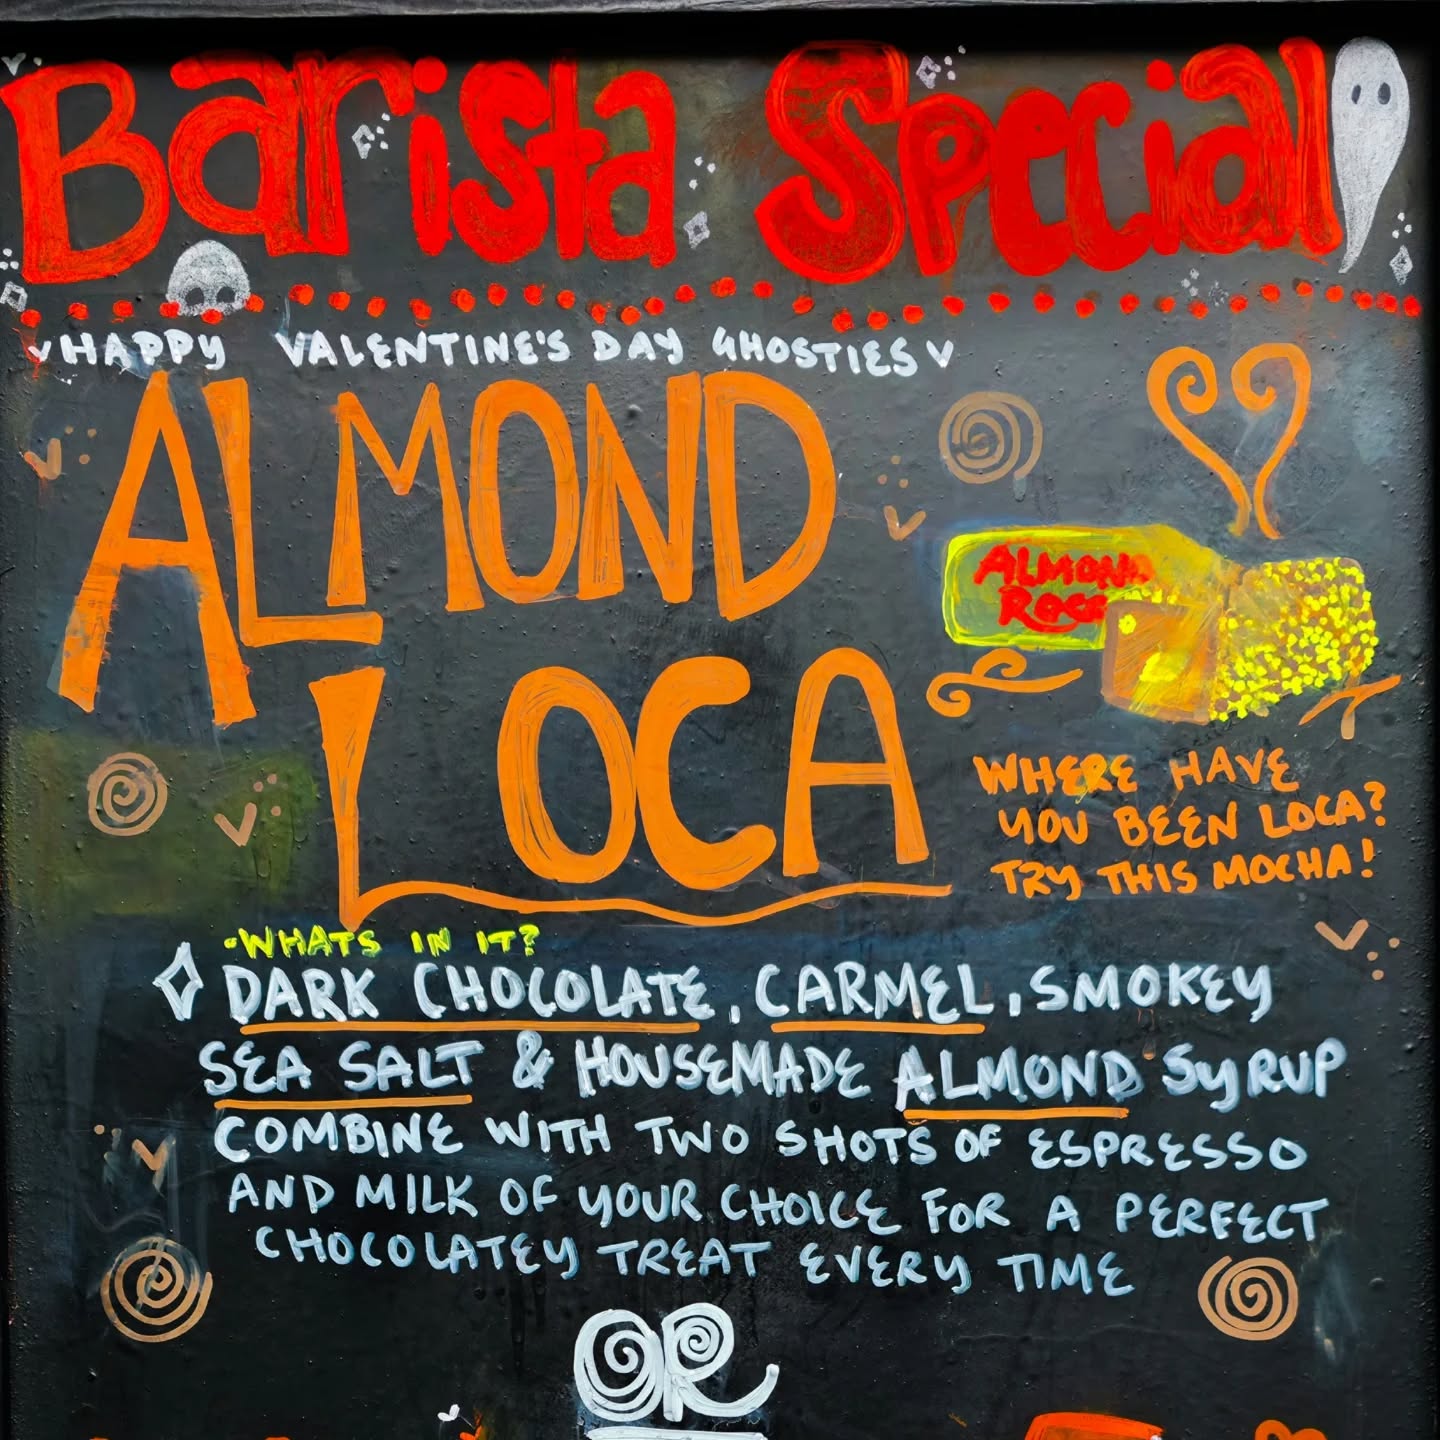 Barista Special
HAPPY VALENTINE'S DAY GHOSTIES
ALMOND
LOCA
ALMOND
ROCA
WHERE HAVE
YOU BEEN LOCA?
TRY THIS MOCHA!
-WHATS IN IT?
DARK CHOCOLATE, CARMEL, SMOKEY
SEA SALT & HOUSEMADE ALMOND SYRUP
COMBINE WITH TWO SHOTS OF ESPRESSO
AND MILK OF YOUR CHOICE FOR A PERFECT
CHOCOLATEY TREAT EVERY TIME
OR